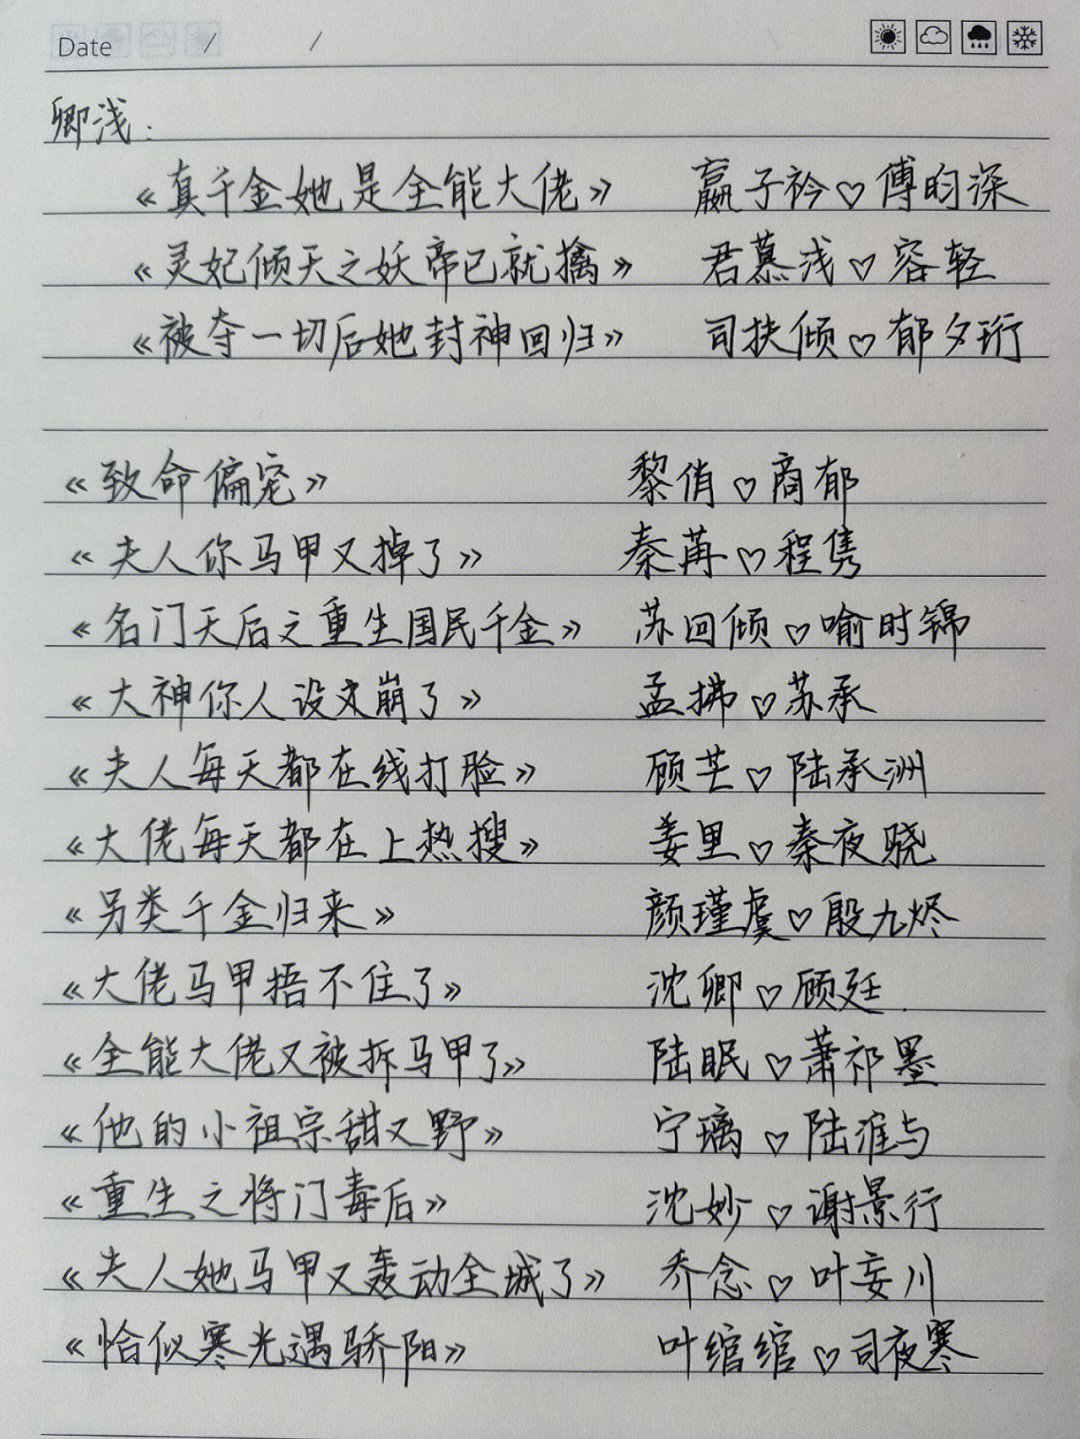 Date / /
卿浅：
《真千金她是全能大佬》 嬴子衿♡傅昀深
《灵妃倾天之妖帝已就擒》 君慕浅♡容轻
《被夺一切后她封神回归》 司扶倾♡郁夕珩
《致命偏宠》 黎俏♡商郁
《夫人你马甲又掉了》 秦苒♡程隽
《名门天后之重生国民千金》 苏回倾♡喻时锦
《大神你人设又崩了》 孟拂♡苏承
《夫人每天都在线打脸》 顾芒♡陆承洲
《大佬每天都在上热搜》 姜里♡秦夜骁
《另类千金归来》 颜瑾虞♡殷九烬
《大佬马甲捂不住了》 沈卿♡顾廷
《全能大佬又被拆马甲了》 陆眠♡萧祁墨
《他的小祖宗甜又野》 宁璃♡陆淮与
《重生之将门毒后》 沈妙♡谢景行
《夫人她马甲又轰动全城了》 乔念♡叶妄川
《恰似寒光遇骄阳》 叶绾绾♡司夜寒